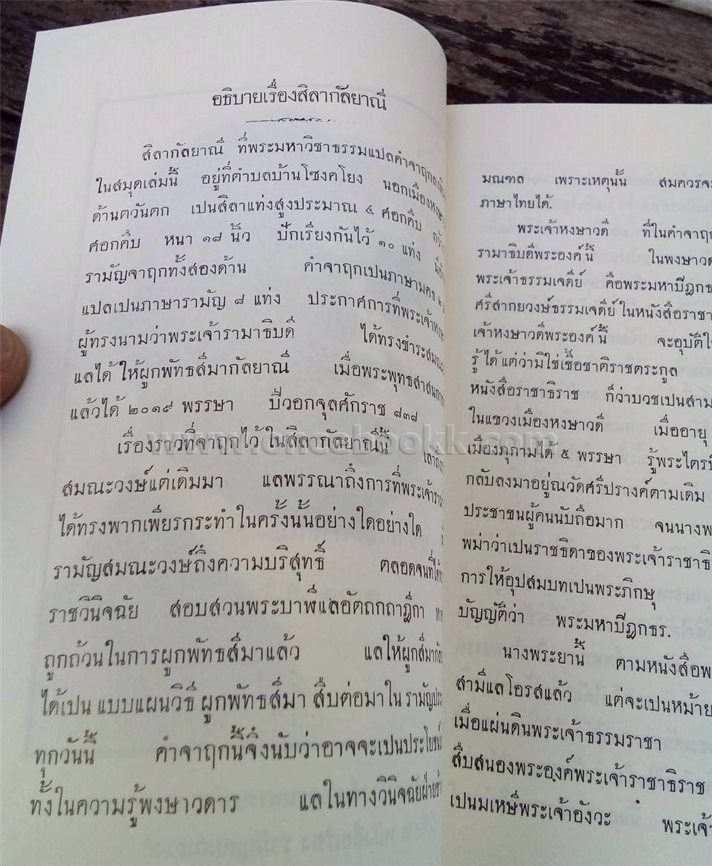 อธิบายเรื่องสิลากัลยาณี
สิลากัลยาณี ที่พระมหาวิชาธรรมแปลคำจาฤก
ในสมุดเล่มนี้ อยู่ที่ตำบลบ้านโซงคโยง นอกเมือง
ด้านตวันตก เปนสิลาแท่งสูงประมาณ ๔ ศอกคืบ
ศอกคืบ หนา ๑๘ นิ้ว ปักเรียงกันไว้ ๑๐ แท่ง
รามัญจาฤกทั้งสองด้าน คำจาฤกเปนภาษามคธ
แปลเปนภาษารามัญ ๘ แท่ง ประกาศการที่พระเจ้า
ผู้ทรงนามว่าพระเจ้ารามาธิบดี ได้ทรงชำระ
แลได้ ให้ผูกพัทธสีมากัลยาณี เมื่อพระพุทธสาสน
แล้วได้ ๒๐๑๙ พรรษา ปีวอกจุลศักราช ๘๓๘
เรื่องราวที่จาฤกไว้ ในสิลากัลยาณีนี้
สมณะวงษ์แต่เดิมมา แลพรรณาถึงการที่พระเจ้า
ได้ทรงพากเพียรกระทำในครั้งนั้นอย่างใดอย่างใด
รามัญสมณะวงษ์ถึงความบริสุทธิ์ ตลอดจนที่ได้
ราชวินิจฉัย สอบสวนพระบาฬีแลอัตถกถาฎีกา
ถูกถ้วนในการผูกพัทธสีมาแล้ว แลให้ผูกสีมา
ได้เปน แบบแผนวิธี ผูกพัทธสีมา สืบต่อมาใน รามัญ
ทุกวันนี้ คำจาฤกนี้จึงนับว่าอาจจะเปนประโยชน์
ทั้งในความรู้พงษาวดาร แลในทางวินิจฉัยฝ่าย
มณฑล เพราะเหตุนั้น สมควรจะ
ภาษาไทยได้.
พระเจ้าหงษาวดี ที่ในคำจาฤก
รามาธิบดีพระองค์นี้ ในพงษาวด
พระเจ้าธรรมเจดีย์ คือพระมหาปีฎกธร
ศรีสากยวงษ์ธรรมเจดีย์ ในหนังสือราชา
เจ้าหงษาวดีพระองค์นี้ จะอุบัติ
รู้ ได้ แต่ว่ามิใช่เชื้อชาติราชตระกูล
หนังสือราชาธิราช ก็ว่าบวชเปนสาม
ในแขวงเมืองหงษาวดี เมื่ออายุ
เมืองภุกามได้ ๕ พรรษา รู้พระไตร
กลับลงมาอยู่ณวัดศรีปรางค์ตามเดิม
ประชาชนผู้คนนับถือมาก จนนางพ
พม่าว่าเปนราชธิดาของพระเจ้าราชาธิ
การให้อุปสมบทเปนพระภิกษุ
บัญญัติว่า พระมหาปีฎกธร.
นางพระยานี้ ตามหนังสือพ
สามีแลโอรสแล้ว แต่จะเปนหม้าย
เมื่อแผ่นดินพระเจ้าธรรมราชา
สืบสนองพระองค์พระเจ้าราชาธิราช
เปนมเหษีพระเจ้าอังวะ พระเจ้า